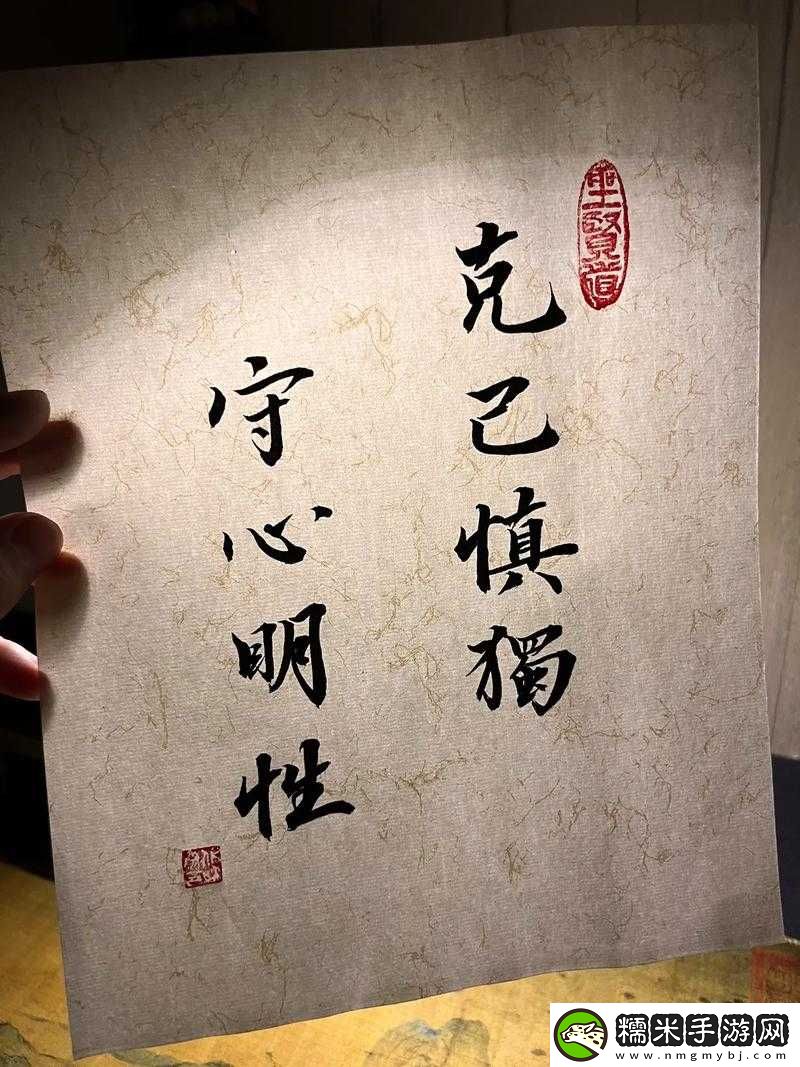 聖賢道
克己慎獨
守心明性
糯米手游网
www.nmgmybj.com